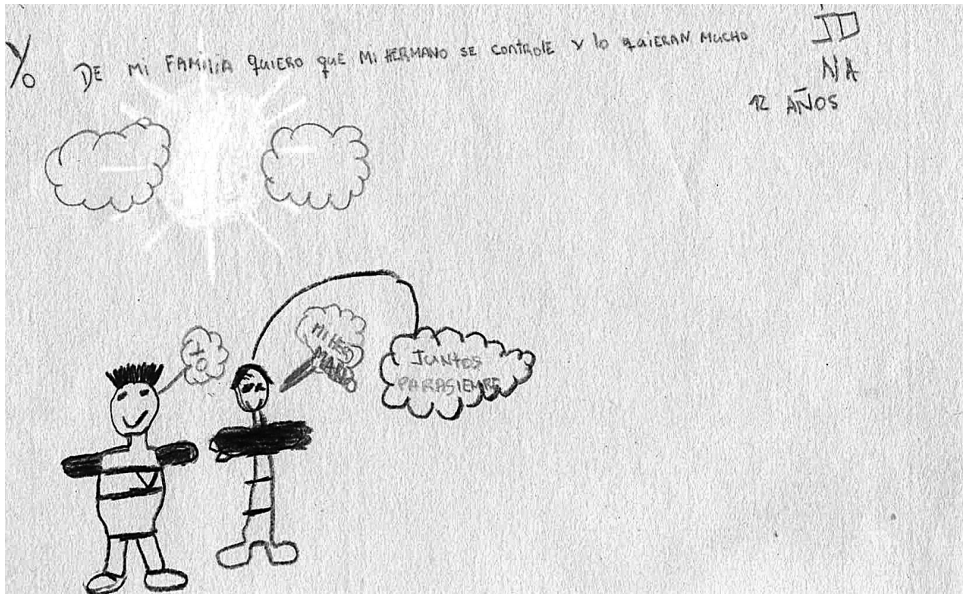 Yo DE MI FAMILIA QUIERO QUE MI HERMANO SE CONTROLE Y lo QUIERAN MUCHO
JD
NA
12 AÑOS
YO
MI HER
MANO
JUNTOS
PARASIEMPRE